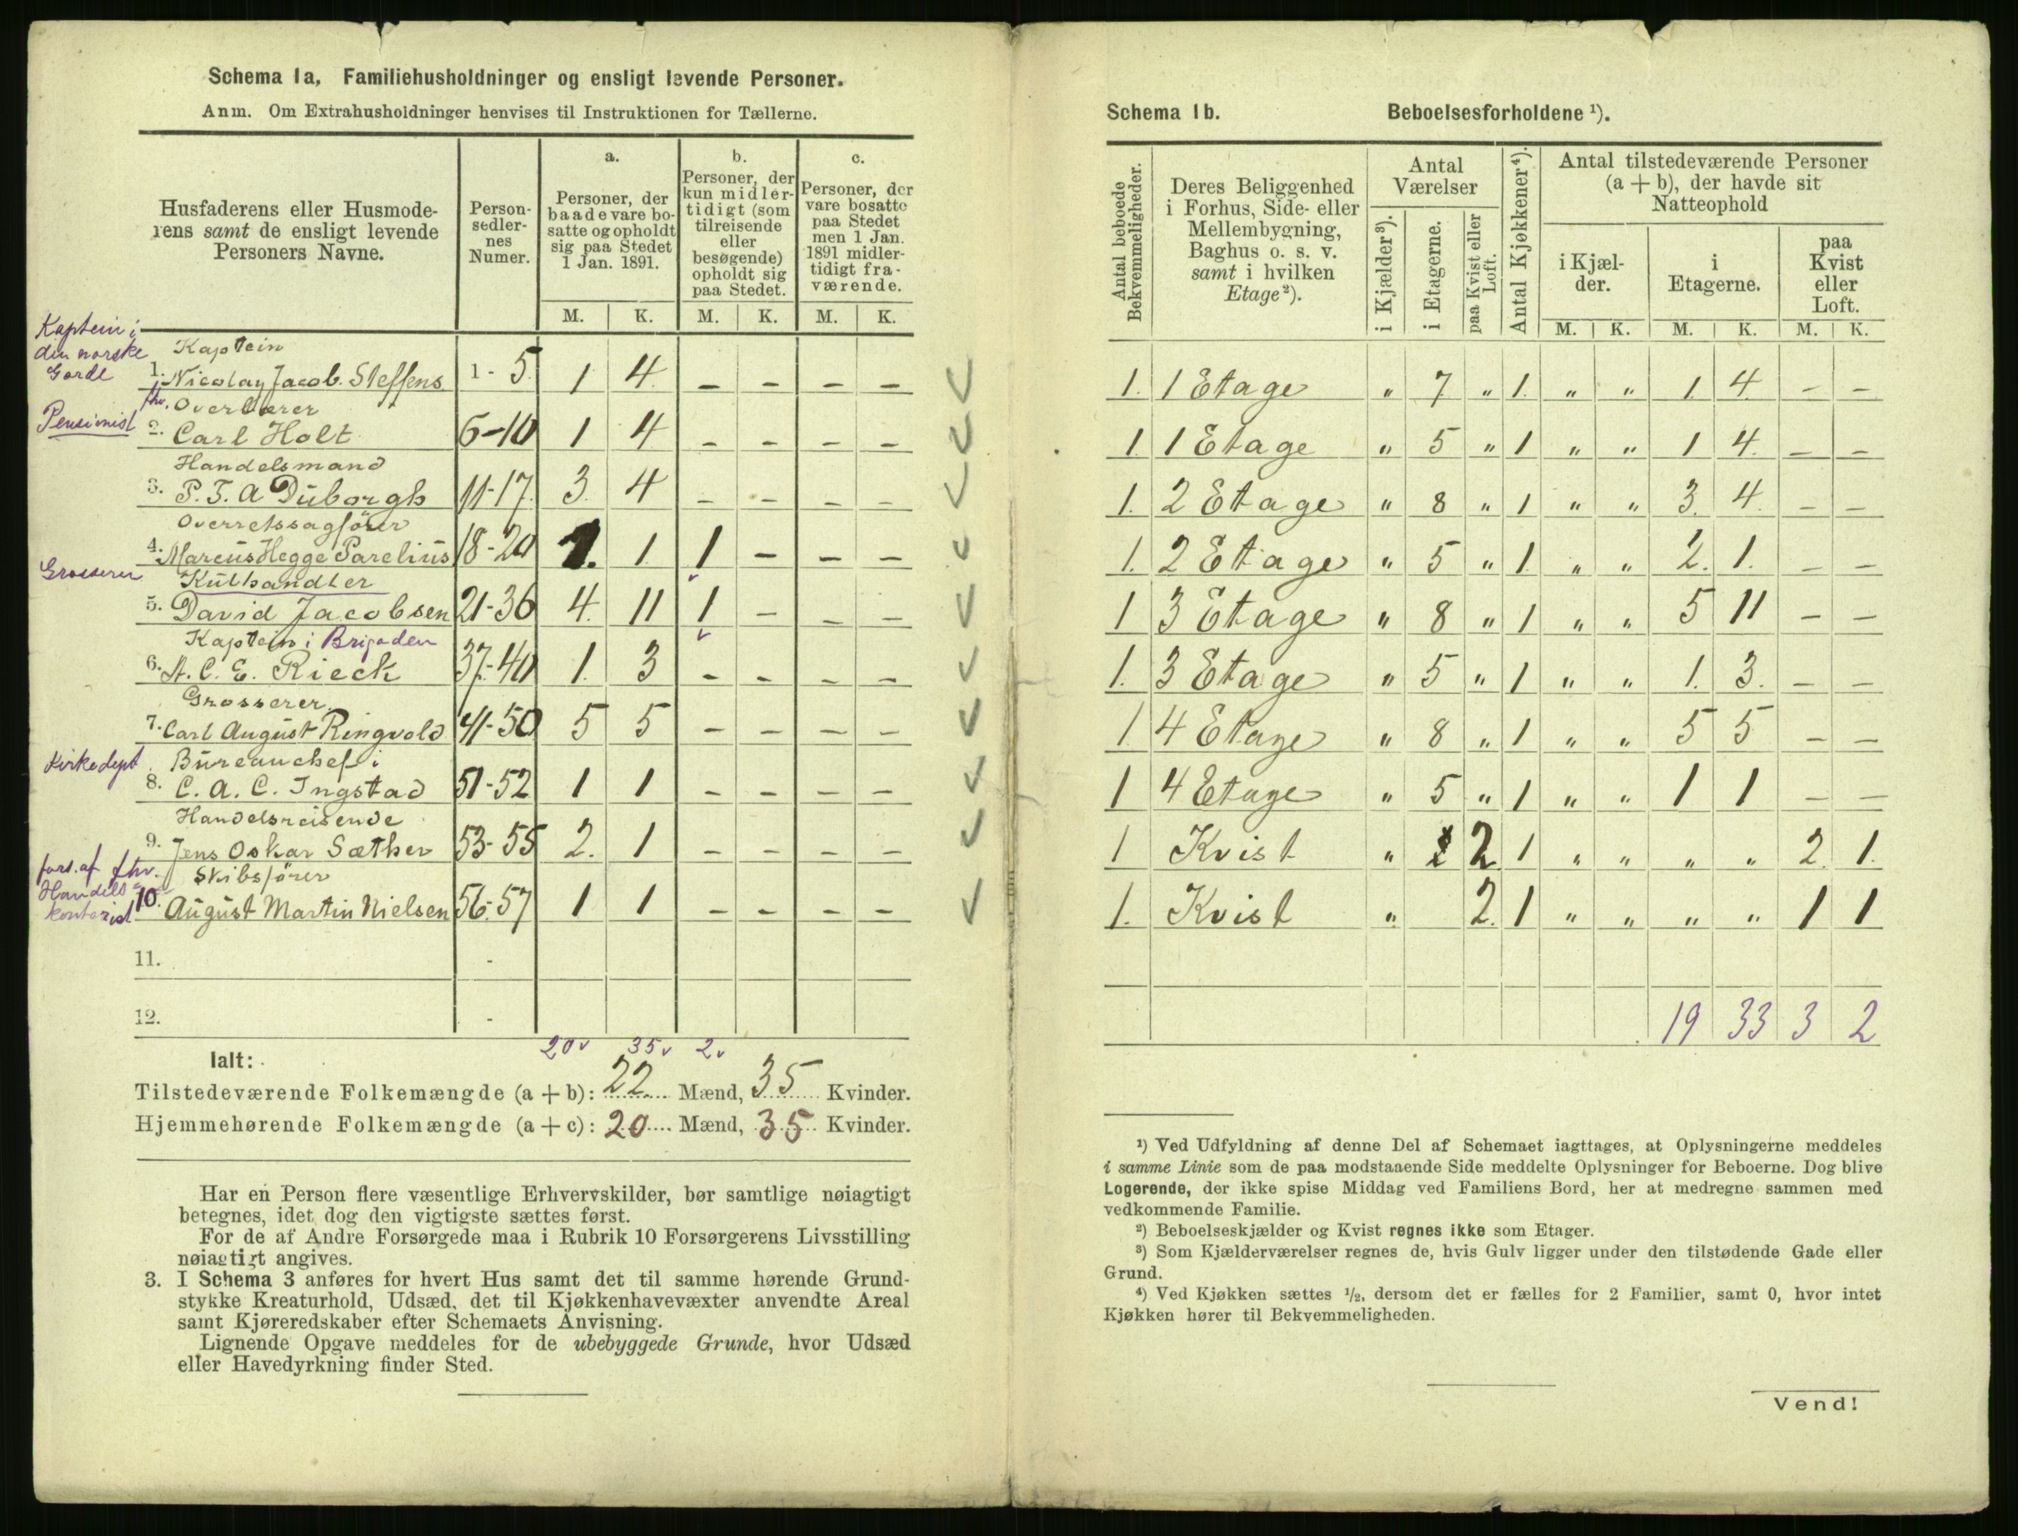 Schema 1a, Familiehusholdninger og ensligt levende Personer.
Anm. Om Extrahusholdninger henvises til Instruktionen for Tællerne.
Husfaderens eller Husmoderens samt de ensligt levende Personers Navne. | Personsedlernes Numer. | a. Personer, der baade vare bosatte og opholdt sig paa Stedet 1 Jan. 1891. | b. Personer, der kun midlertidigt (som tilreisende eller besøgende) opholdt sig paa Stedet. | c. Personer, der vare bosatte paa Stedet men 1 Jan. 1891 midlertidigt fraværende.
M. | K. | M. | K. | M. | K.
Kaptein i den norske Garde
Kaptein
1. Nicolay Jacob Steffens | 1 - 5. | 1 | 4. | – | – | – | –
Pensionist
fhv. Overlærer
2. Carl Holt | 6-10 | 1 | 4 | – | – | – | –
Handelsmand
3. P. T. A Duborgh | 11-17. | 3. | 4 | – | – | – | –
Overretssagfører
4. Marcus Hegge Parelius | 18-20 | 1. | 1. | 1 | – | – | –
Grosserer
Kulhandler
5. David Jacobsen | 21-36 | 4. | 11 | 1 | – | – | –
Kaptein i Brigaden
6. A. C. E. Rieck | 37-40 | 1. | 3 | – | – | – | –
Grosserer.
7. Carl August Ringvold | 41-50 | 5 | 5 | – | – | – | –
Kirkedept.
Bureauchef i
8. C. A. C. Ingstad | 51-52 | 1 | 1 | – | – | – | –
Handelsreisende
9. Jens Oskar Sæther | 53-55 | 2. | 1 | – | – | – | –
fors. af fhv. Handelskontorist
Skibsfører
10. August Martin Nielsen | 56-57 | 1 | 1 | – | – | – | –
11. | -
12. | -
20 v 35 v 2 v
Ialt:
Tilstedeværende Folkemængde (a + b): 22 Mænd, 35 Kvinder.
Hjemmehørende Folkemængde (a + c): 20 Mænd, 35 Kvinder.
Har en Person flere væsentlige Erhvervskilder, bør samtlige nøiagtigt
betegnes, idet dog den vigtigste sættes først.
For de af Andre Forsørgede maa i Rubrik 10 Forsørgerens Livsstilling
nøiagtigt angives.
3. I Schema 3 anføres for hvert Hus samt det til samme hørende Grund-
stykke Kreaturhold, Udsæd, det til Kjøkkenhavevæxter anvendte Areal
samt Kjøreredskaber efter Schemaets Anvisning.
Lignende Opgave meddeles for de ubebyggede Grunde, hvor Udsæd
eller Havedyrkning finder Sted.
Schema 1b. Beboelsesforholdene ¹).
Antal beboede Bekvemmeligheder. | Deres Beliggenhed i Forhus, Side- eller Mellembygning, Baghus o. s. v. samt i hvilken Etage ²). | Antal Værelser | Antal Kjøkkener ⁴). | Antal tilstedeværende Personer (a + b), der havde sit Natteophold
i Kjælder ³). | i Etagerne. | paa Kvist eller Loft. | i Kjælder. | i Etagerne. | paa Kvist eller Loft.
M. | K. | M. | K. | M. | K.
1. | 1 Etage | „ | 7 | „ | 1. | „ | „ | 1 | 4. | – | –
1. | 1 Etage | „ | 5 | „ | 1 | „ | „ | 1 | 4. | – | –
1. | 2 Etage | „ | 8 | „ | 1 | „ | „ | 3. | 4. | – | –
1. | 2 Etage | „ | 5 | „ | 1. | „ | „ | 2. | 1. | – | –
1 | 3 Etage | „ | 8 | „ | 1 | „ | „ | 5 | 11 | – | –
1. | 3 Etage | „ | 5 | „ | 1 | „ | „ | 1. | 3. | – | –
1 | 4 Etage | „ | 8 | „ | 1 | „ | „ | 5 | 5 | – | –
1 | 4 Etage | „ | 5 | „ | 1 | „ | „ | 1 | 1 | – | –
1 | Kvist | „ | | 2 | 1 | „ | „ | „ | „ | 2. | 1.
1. | Kvist | „ | | 2. | 1 | „ | „ | „ | „ | 1 | 1
19 | 33 | 3 | 2
¹) Ved Udfyldning af denne Del af Schemaet iagttages, at Oplysningerne meddeles
i samme Linie som de paa modstaaende Side meddelte Oplysninger for Beboerne. Dog blive
Logerende, der ikke spise Middag ved Familiens Bord, her at medregne sammen med
vedkommende Familie.
²) Beboelseskjælder og Kvist regnes ikke som Etager.
³) Som Kjælderværelser regnes de, hvis Gulv ligger under den tilstødende Gade eller
Grund.
⁴) Ved Kjøkken sættes ½, dersom det er fælles for 2 Familier, samt 0, hvor intet
Kjøkken hører til Bekvemmeligheden.
Vend!